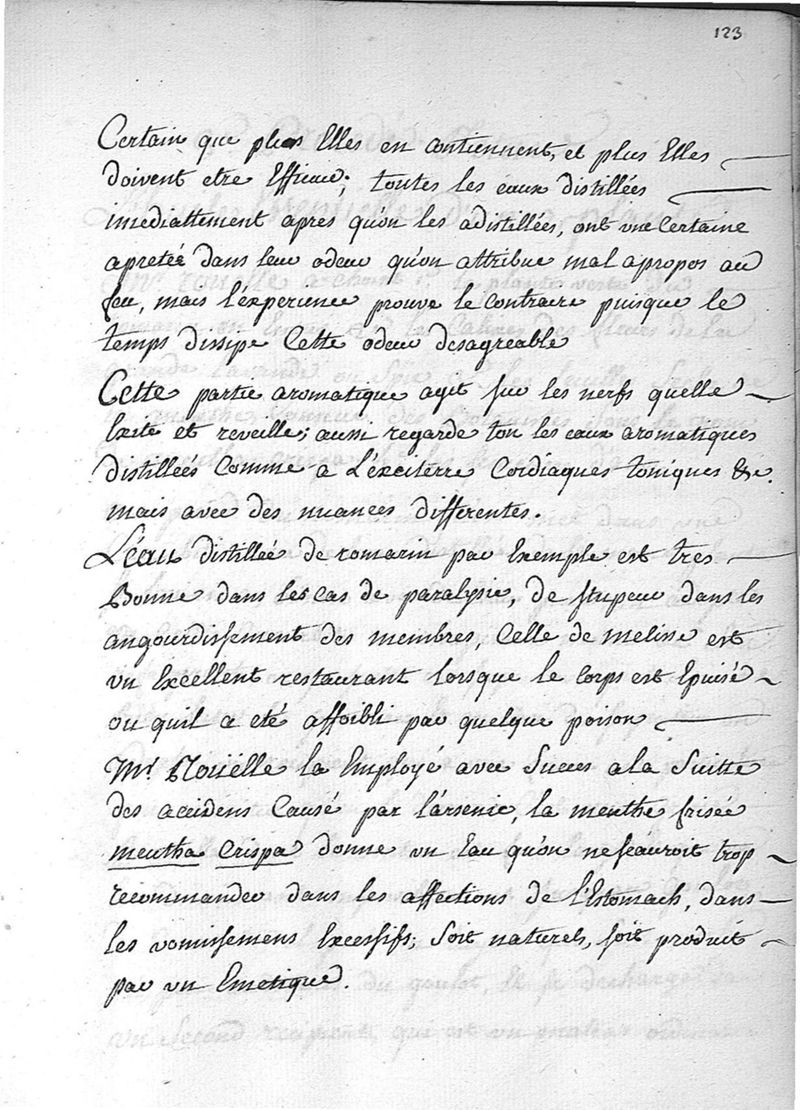 123
Certain que plus Elles en contiennent, et plus Elles
doivent etre Efficace; toutes les eaux distillées
imediattement apres qu'on les adistillées, ont une Certaine
apretée dans leur odeur qu'on attribue mal apropos au
feu, mais l'éxperience prouve le Contraire puisque le
temps dissipe Cette odeur desagreable
Cette partie aromatique agit sur les nerfs quelle
Exite et reveille; aussi regarde ton les eaux aromatiques
distillées Comme a L'éxciterre Cordiaques toniques &c.
mais avec des nuances differentes.
L'éau distillée de romarin par Exemple est tres
Bonne dans les cas de paralysie, de stupeur dans les
angourdissement des membres, Celle de melisse est
un Excellent restaurant lorsque le Corps est Epuisé
ou quil a eté affoibli par quelque poison
Mr. Roüelle la Employé avec Succes a la Suitte
des accidens Causé par l'arsenic, la menthe frisée
mentha Crispa donne un Eau qu'on ne sçauroit trop
recommander dans les affections de l'Estomach, dans
les vomissemens Excessifs; soit naturels, soit produit
par un Emetique.